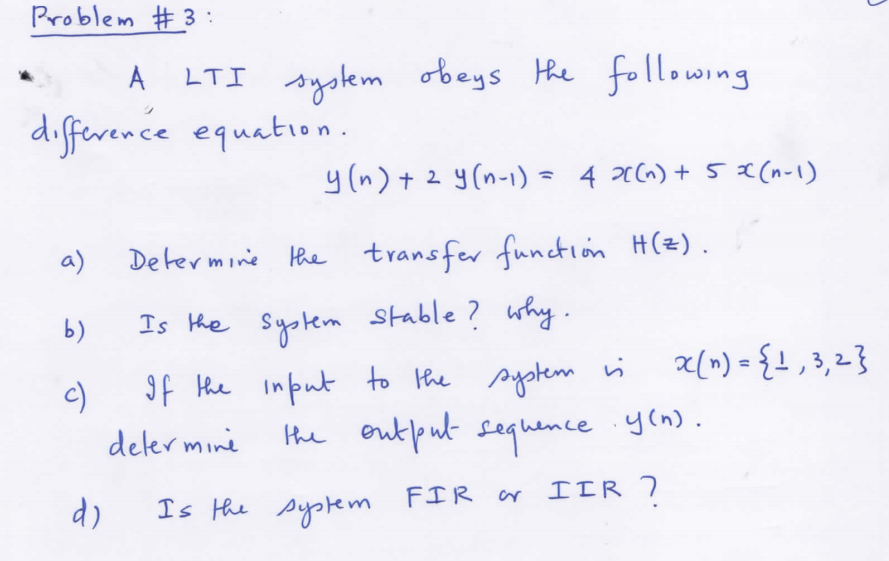 Problem # 3 :
A LTI system obeys the following
difference equation.
y(n) + 2 y(n-1) = 4 x(n) + 5 x(n-1)
a) Determine the transfer function H(z).
b) Is the system stable? why.
c) If the input to the system is x(n) = {1, 3, 2}
determine the output sequence y(n).
d) Is the system FIR or IIR ?